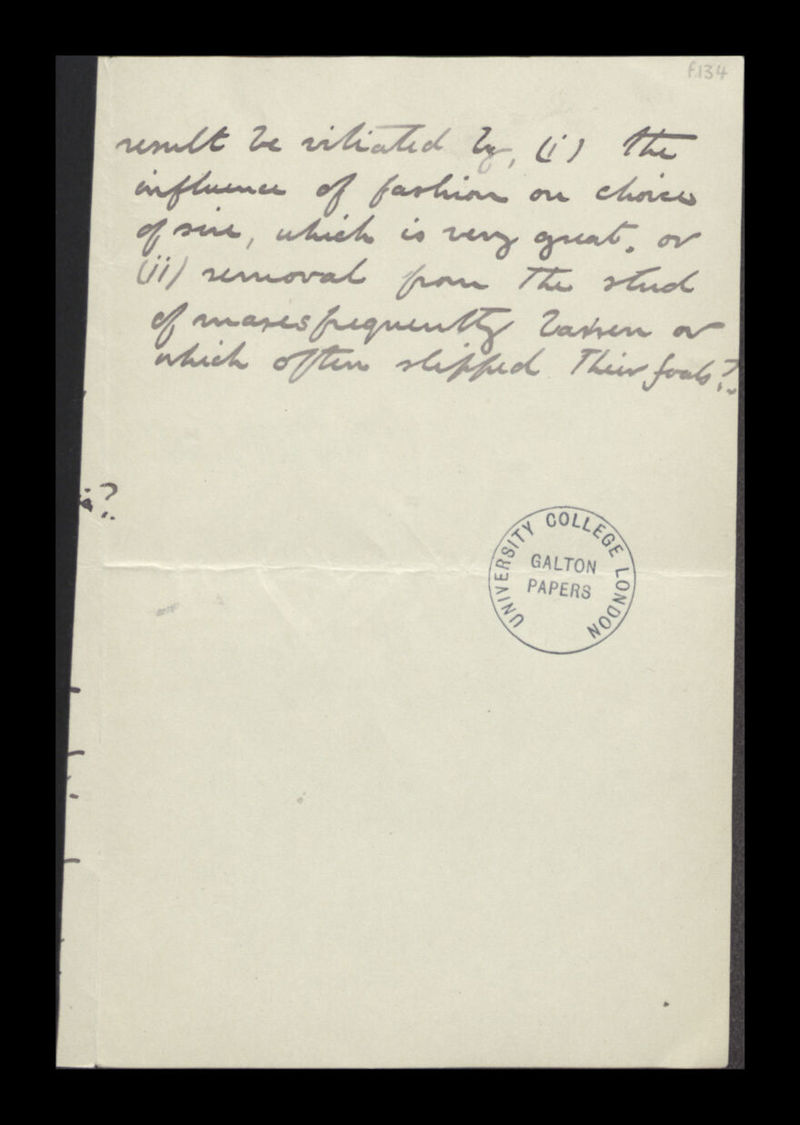 f.134
result be vitiated by, (i) the
influence of fashion on choice
of sire, which is very great, or
(ii) removal from the stud
of mares frequently barren or
which often slipped their foals?
?
UNIVERSITY COLLEGE LONDON
GALTON
PAPERS